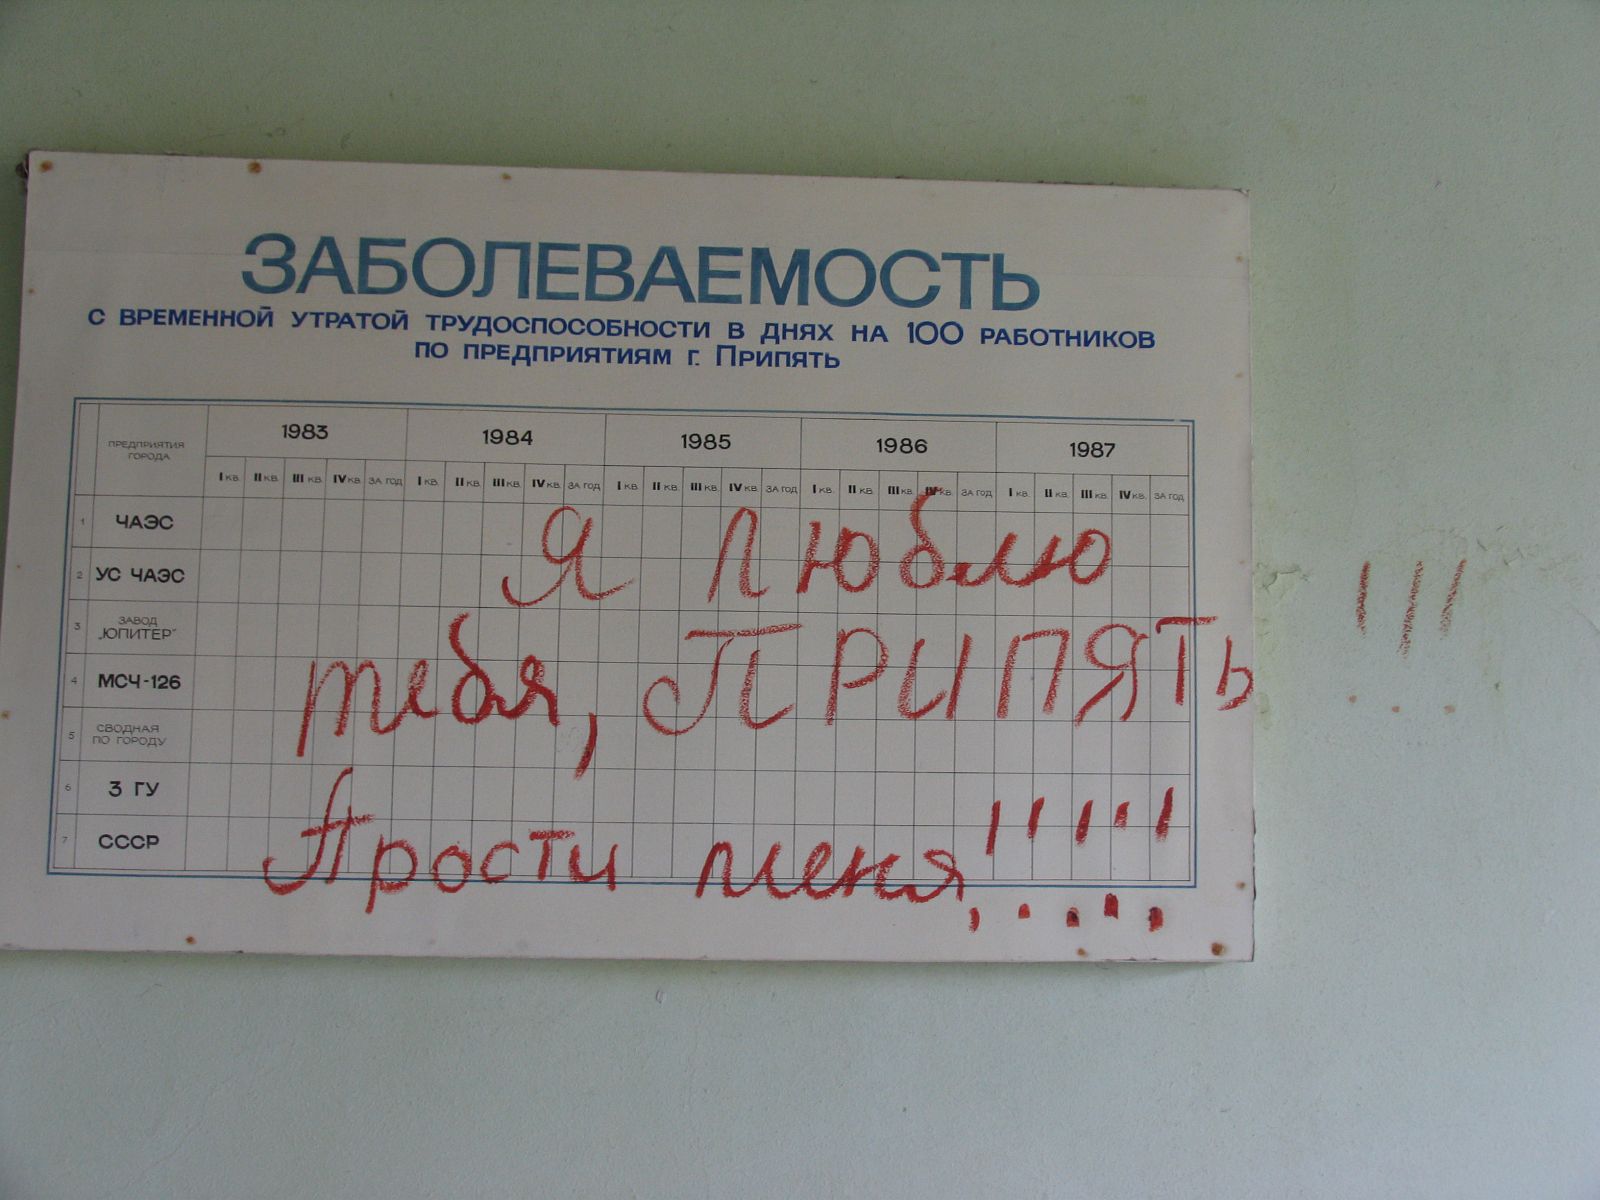 ЗАБОЛЕВАЕМОСТЬ
С ВРЕМЕННОЙ УТРАТОЙ ТРУДОСПОСОБНОСТИ В ДНЯХ НА 100 РАБОТНИКОВ
ПО ПРЕДПРИЯТИЯМ г. ПРИПЯТЬ
ПРЕДПРИЯТИЯ
ГОРОДА
1983 1984 1985 1986 1987
I КВ. II КВ. III КВ. IV КВ. ЗА ГОД I КВ. II КВ. III КВ. IV КВ. ЗА ГОД I КВ. II КВ. III КВ. IV КВ. ЗА ГОД I КВ. II КВ. III КВ. IV КВ. ЗА ГОД I КВ. II КВ. III КВ. IV КВ. ЗА ГОД
1 ЧАЭС
2 УС ЧАЭС
3 ЗАВОД
„ЮПИТЕР"
4 МСЧ-126
5 СВОДНАЯ
ПО ГОРОДУ
6 3 ГУ
7 СССР
Я люблю
тебя, ПРИПЯТЬ !!!
Прости меня!!!!!